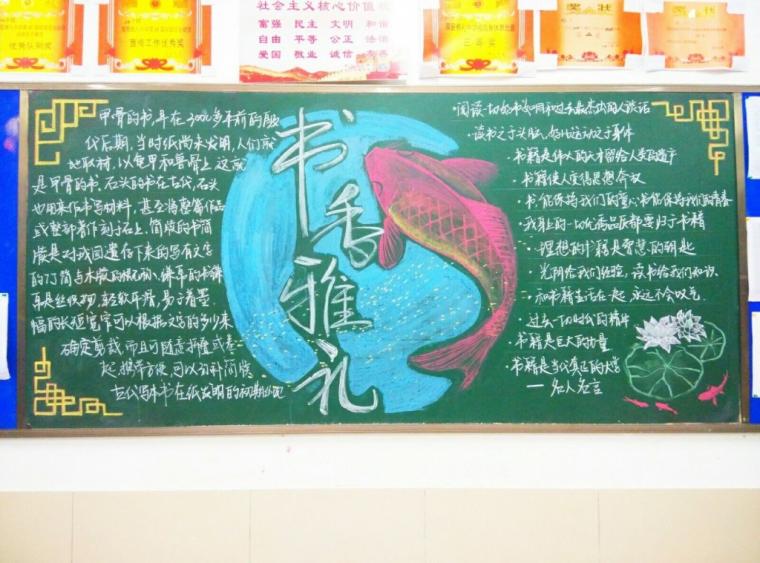 优秀队刷奖
宣传工作优秀奖
社会主义核心价值观
富强 民主 文明 和谐
自由 平等 公正 法治
爱国 敬业 诚信 友善
三等奖
奖状
甲骨的书,早在3000多年前的殷
代后期,当时纸尚未发明,人们就
地取材,以龟甲和兽骨上 这就
是甲骨的书,石头的书在古代,石头
也用来作书写材料,甚至将整篇作品
或整部著作刻于石上,简牍的书简
牍是对我国遗存下来的写有文字
的竹简与木牍的概称,缣帛的书缣
帛是丝织物,轻软平滑,易于着墨
幅的长短宽窄可以根据文字的多少来
确定剪裁 而且可随意折叠或卷
起,携带方便,可以弥补简牍
古代写本书在纸发明的初期
书香雅礼
·阅读一切好书如同和过去最杰出的人谈话
·读书之于头脑,好比运动之于身体
·书籍是伟大的天才留给人类的遗产
·书籍使人变得思想奔放
·书能保持我们的童心 书能保持我们的青春
·我身上的一切优秀品质都要归于书籍
·理想的书籍是智慧的钥匙
·光阴给我们经验,读书给我们知识
·和书籍生活在一起 永远不会叹气
·过去一切时代的精华
·书籍是巨大的力量
·书籍是当代真正的大学
——名人名言